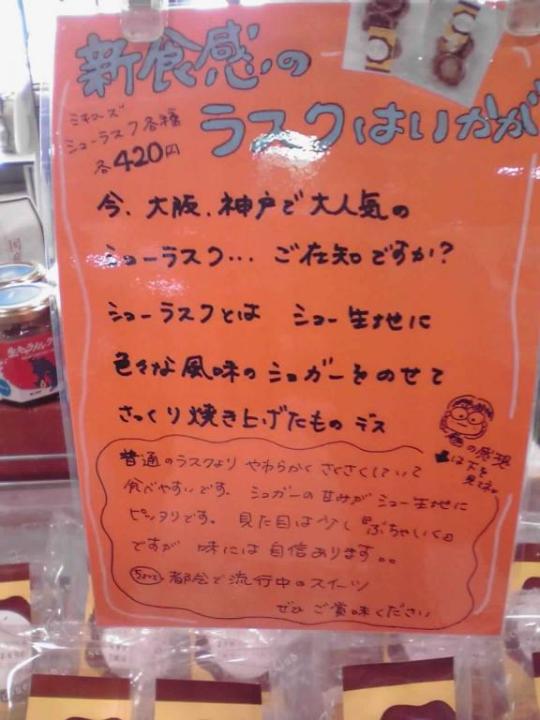 新食感の
ラスクはいかが
シューラスク各種
各420円
今、大阪、神戸で大人気の
シューラスク… ご在知ですか?
シューラスクとは シュー生地に
色々な風味のシュガーをのせて
さっくり焼き上げたものデス
私の感想
は下を
見てね。
普通のラスクより やわらかく さくさくしていて
食べやすいです。 シュガーの甘みが シュー生地に
ピッタリです。 見た目は少し ぶちゃいく
ですが 味には自信あります。。
都会で流行中のスイーツ
ぜひ ご賞味ください
生キャラメル